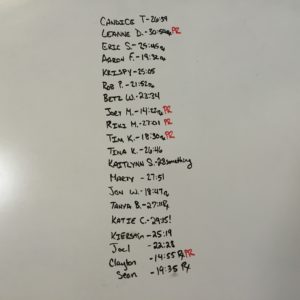 CANDICE T-26:39
LEANNE D.-30:50Rx PR
ERIC S-25:45Rx
AARON F.-19:32Rx
KRISPY-25:05
ROB P.-21:52Rx
BETZ W.-23:34
JOEY M.-14:22Rx PR
RIKI M.-27:01 PR
TIM K.-18:30Rx PR
TINA K.-26:46
KAITLYNN S.-28something
MARTY -27:51
JON W.-18:47Rx
TANYA B.-27:11Rx
KATIE C.-29:35!
KIERSTEN-25:19
Joel -22:28
Clayton -14:55 Rx PR
Sean -19:35 Rx